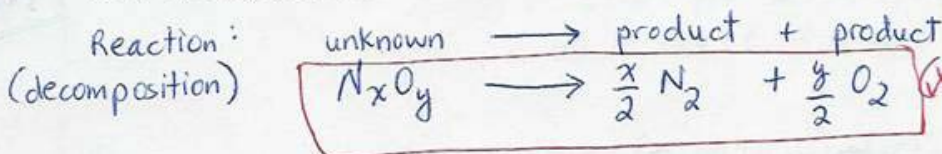 Reaction: unknown → product + product
(decomposition) NₓOᵧ → x/2 N₂ + y/2 O₂